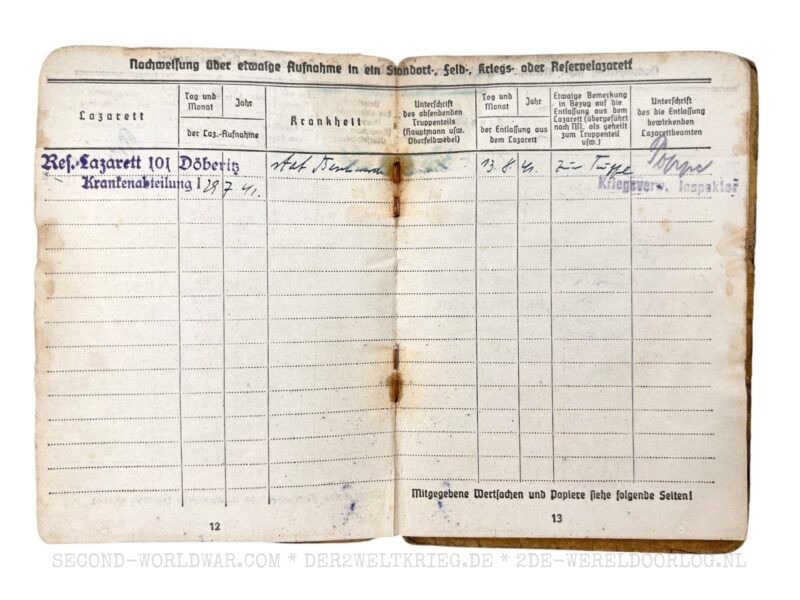 Nachweisung über etwaige Aufnahme in ein Standort-, Feld-, Kriegs- oder Reservelazarett
Lazarett
Tag und Monat
Jahr
der Laz.-Aufnahme
Krankheit
Unterschrift
des absendenden
Truppenteils
(Hauptmann usw.
Oberfeldwebel)
Tag und Monat
Jahr
der Entlassung aus
dem Lazarett
Etwaige Bemerkung
in Bezug auf die
Entlassung aus dem
Lazarett (übergeführt
nach NN, als geheilt
zum Truppenteil
usw.)
Unterschrift
des die Entlassung
bewirkenden
Lazarettbeamten
Res.-Lazarett 101 Döberitz
Krankenabteilung I 29 7 41.
13. 8. 41. zur Truppe
Poppe
Kriegsverw. Inspektor
Mitgegebene Wertsachen und Papiere siehe folgende Seiten!
12
13
SECOND-WORLDWAR.COM * DER2WELTKRIEG.DE * 2DE-WERELDOORLOG.NL